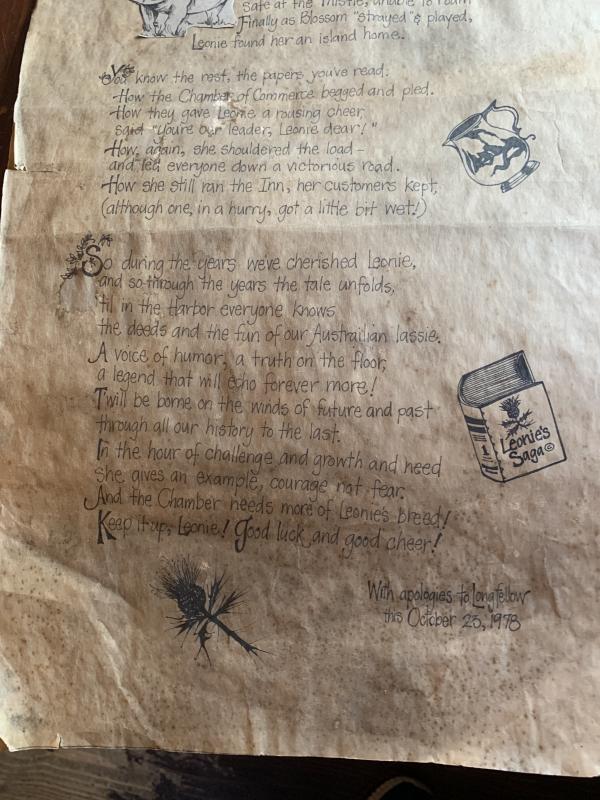 Safe at the Thistle, unable to roam
Finally as Blossom "strayed" & played,
Leonie found her an island home.
You know the rest, the papers you've read.
How the Chamber of Commerce begged and pled.
How they gave Leonie a rousing cheer,
said "you're our leader, Leonie dear!"
How, again, she shouldered the load –
and led everyone down a victorious road.
How she still ran the Inn, her customers kept,
(although one, in a hurry, got a little bit wet!)
So during the years we've cherished Leonie,
and so through the years the tale unfolds,
'til in the Harbor everyone knows
the deeds and the fun of our Austrailian lassie.
A voice of humor, a truth on the floor,
a legend that will echo forever more!
Twill be borne on the winds of future and past
through all our history to the last.
In the hour of challenge and growth and need
she gives an example, courage not fear,
And the Chamber needs more of Leonie's breed!
Keep it up, Leonie! Good luck and good cheer!
Leonie's
Saga©
1
With apologies to Longfellow
this October 23, 1978